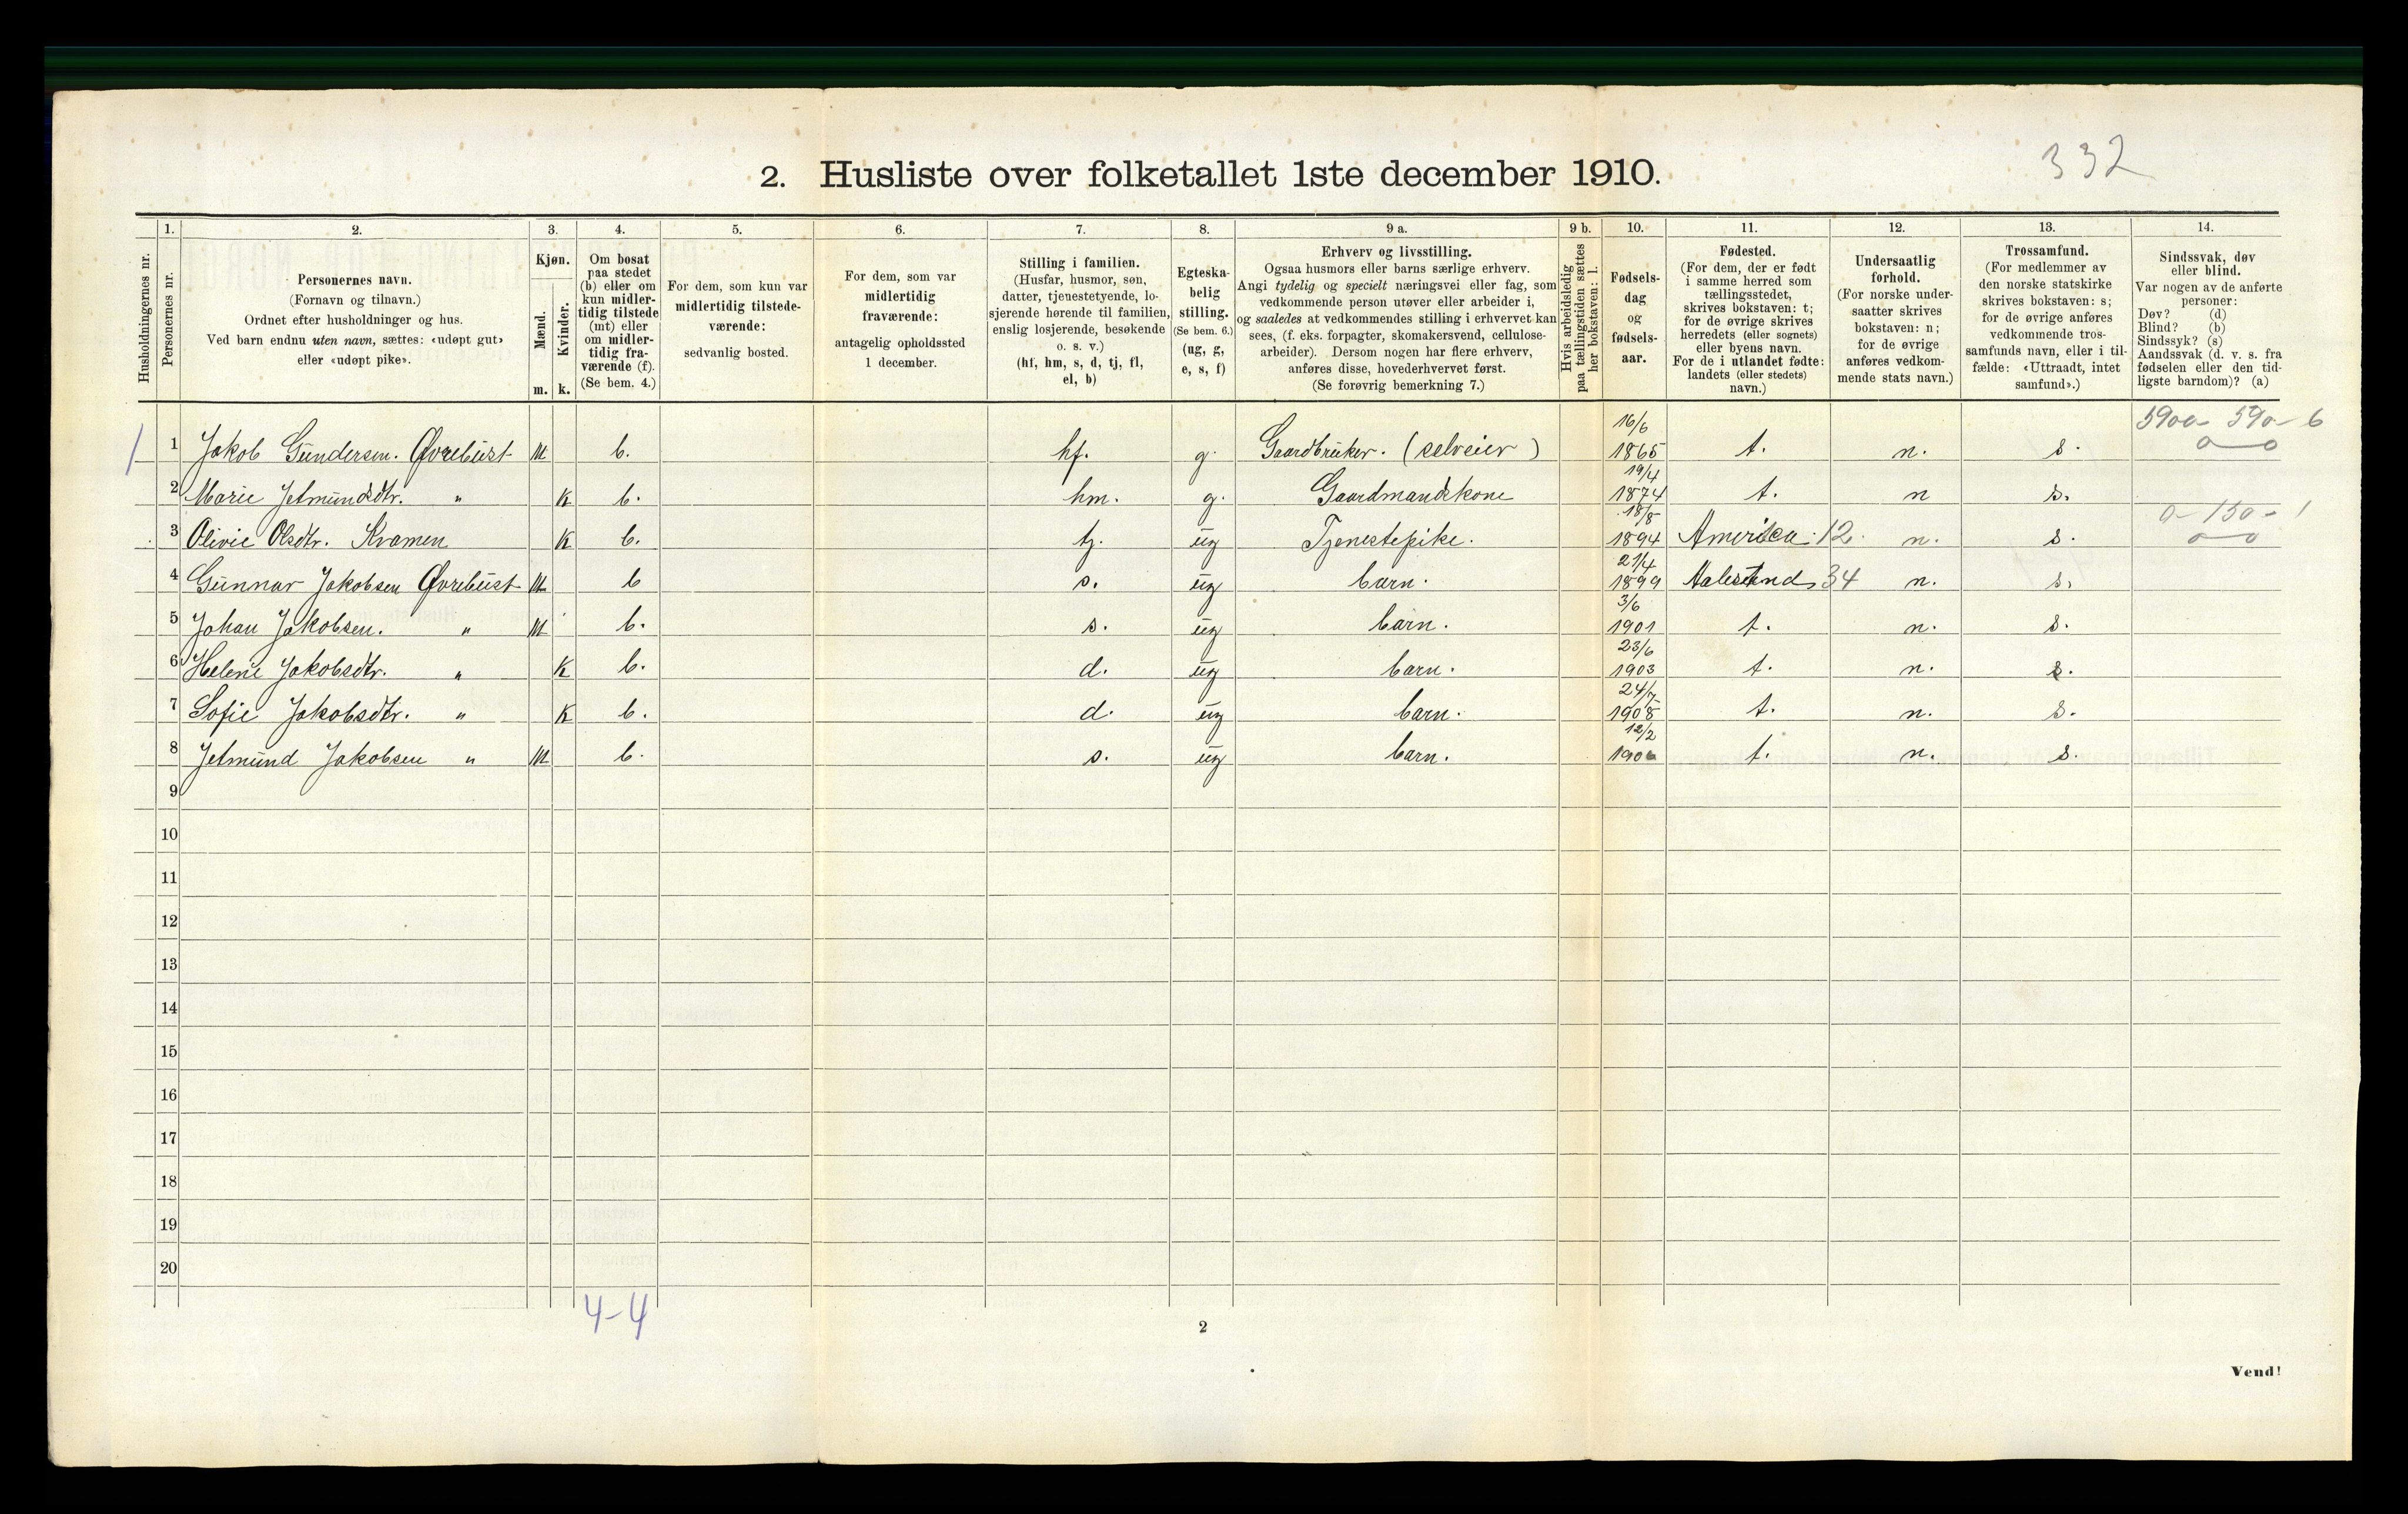 332
2. Husliste over folketallet 1ste december 1910.
Husholdningernes nr.
1. Personernes nr.
2. Personernes navn.
(Fornavn og tilnavn.)
Ordnet efter husholdninger og hus.
Ved barn endnu uten navn, sættes: «udøpt gut»
eller «udøpt pike».
3. Kjøn.
Mænd. m.
Kvinder. k.
4. Om bosat
paa stedet
(b) eller om
kun midler-
tidig tilstede
(mt) eller
om midler-
tidig fra-
værende (f).
(Se bem. 4.)
5. For dem, som kun var
midlertidig tilstede-
værende:
sedvanlig bosted.
6. For dem, som var
midlertidig
fraværende:
antagelig opholdssted
1 december.
7. Stilling i familien.
(Husfar, husmor, søn,
datter, tjenestetyende, lo-
sjerende hørende til familien,
enslig losjerende, besøkende
o. s. v.)
(hf, hm, s, d, tj, fl,
el, b)
8. Egteska-
belig
stilling.
(Se bem. 6.)
(ug, g,
e, s, f)
9 a. Erhverv og livsstilling.
Ogsaa husmors eller barns særlige erhverv.
Angi tydelig og specielt næringsvei eller fag, som
vedkommende person utøver eller arbeider i,
og saaledes at vedkommendes stilling i erhvervet kan
sees, (f. eks. forpagter, skomakersvend, cellulose-
arbeider). Dersom nogen har flere erhverv,
anføres disse, hovederhvervet først.
(Se forøvrig bemerkning 7.)
9 b. Hvis arbeidsledig
paa tællingstiden sættes
her bokstaven: l.
10. Fødsels-
dag
og
fødsels-
aar.
11. Fødested.
(For dem, der er født
i samme herred som
tællingsstedet,
skrives bokstaven: t;
for de øvrige skrives
herredets (eller sognets)
eller byens navn.
For de i utlandet fødte:
landets (eller stedets)
navn.)
12. Undersaatlig
forhold.
(For norske under-
saatter skrives
bokstaven: n;
for de øvrige
anføres vedkom-
mende stats navn.)
13. Trossamfund.
(For medlemmer av
den norske statskirke
skrives bokstaven: s;
for de øvrige anføres
vedkommende tros-
samfunds navn, eller i til-
fælde: «Uttraadt, intet
samfund».)
14. Sindssvak, døv
eller blind.
Var nogen av de anførte
personer:
Døv? (d)
Blind? (b)
Sindssyk? (s)
Aandssvak (d. v. s. fra
fødselen eller den tid-
ligste barndom)? (a)
1 1 Jakob Gundersen. Øvrebust M b. hf. g. Gaardbruker. (selveier) 16/6 1865 t. n. s.
2 Marie Jetmundsdtr. " K b. hm. g. Gaardmandskone 19/4 1874 t. n s.
3 Olivie Olsdtr. Kvamen K b. tj. ug Tjenestepike. 18/8 1894 Amerika. 12. n. s. 0-150-1
4 Gunnar Jakobsen Øvrebust M b s. ug barn. 21/4 1899 Aalesund 34 n. s.
5 Johan Jakobsen. " M b. s. ug barn. 3/6 1901 t. n. s.
6 Helene Jakobsdtr. " K b. d. ug barn. 23/6 1903 t. n. s.
7 Sofie Jakobsdtr. " K b. d. ug barn. 24/7 1908 t. n. s.
8 Jetmund Jakobsen " M b. s. ug barn. 12/2 t. n. s.
9
10
11
12
13
14
15
16
17
18
19
20
4-4
2
Vend!